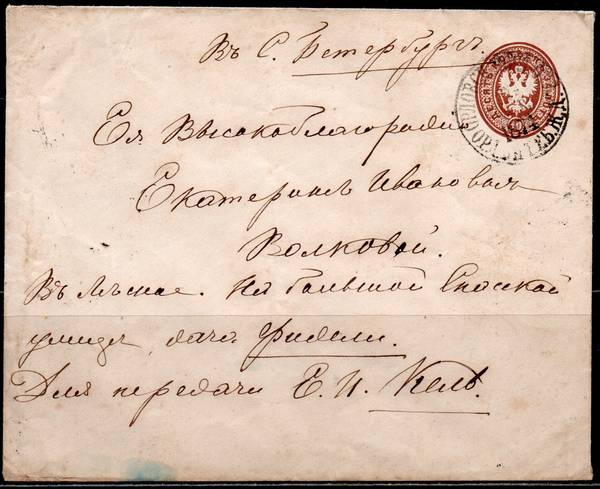 Въ С. Петербургъ.
Ея Высокоблагородію
Екатеринѣ Ивановнѣ
Волковой.
Въ Лѣсное. На большой Спасской
улицѣ дача Фидели.
Для передачи Е. И. Кель.
1874